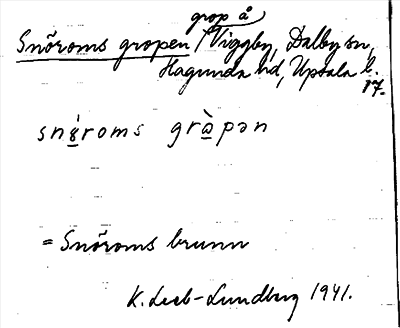 grop å
Snöroms gropen / Viggby, Dalby sn,
Hagunda hd, Upsala l.
snö̀roms grɑ̀pən
= Snöroms brunn
K. Leeb-Lundberg 1941.